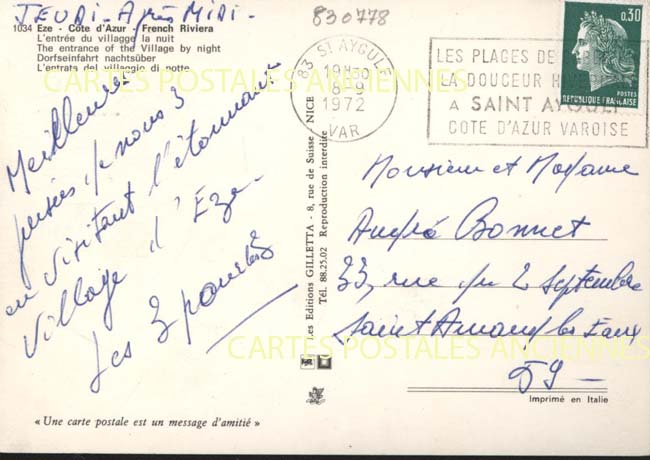 JEUDI - Après MIDI -
830778
1034 Eze - Côte d'Azur - French Riviera
L'entrée du villagge la nuit
The entrance of the Village by night
Dorfseinfahrt nachtsüber
L'entrata del villaggio di notte
CARTES POSTALES ANCIENNES
Meilleures
pensées de nous 3
en visitant l'étonnant
Village d'Eze
Les 3
83 St AYGULF
19H30
8-9
1972
VAR
LES PLAGES DE
LA DOUCEUR
A SAINT AYGULF
COTE D'AZUR VAROISE
0,30
POSTES
REPUBLIQUE FRANÇAISE
Les Editions GILLETTA - 8, rue de Suisse, NICE
Tél. 88.25.02 Reproduction interdite
Monsieur et Madame
André Bonnet
33, rue du 2 Septembre
Saint Amand les Eaux
59 -
CARTES POSTALES ANCIENNES
Imprimé en Italie
« Une carte postale est un message d'amitié »